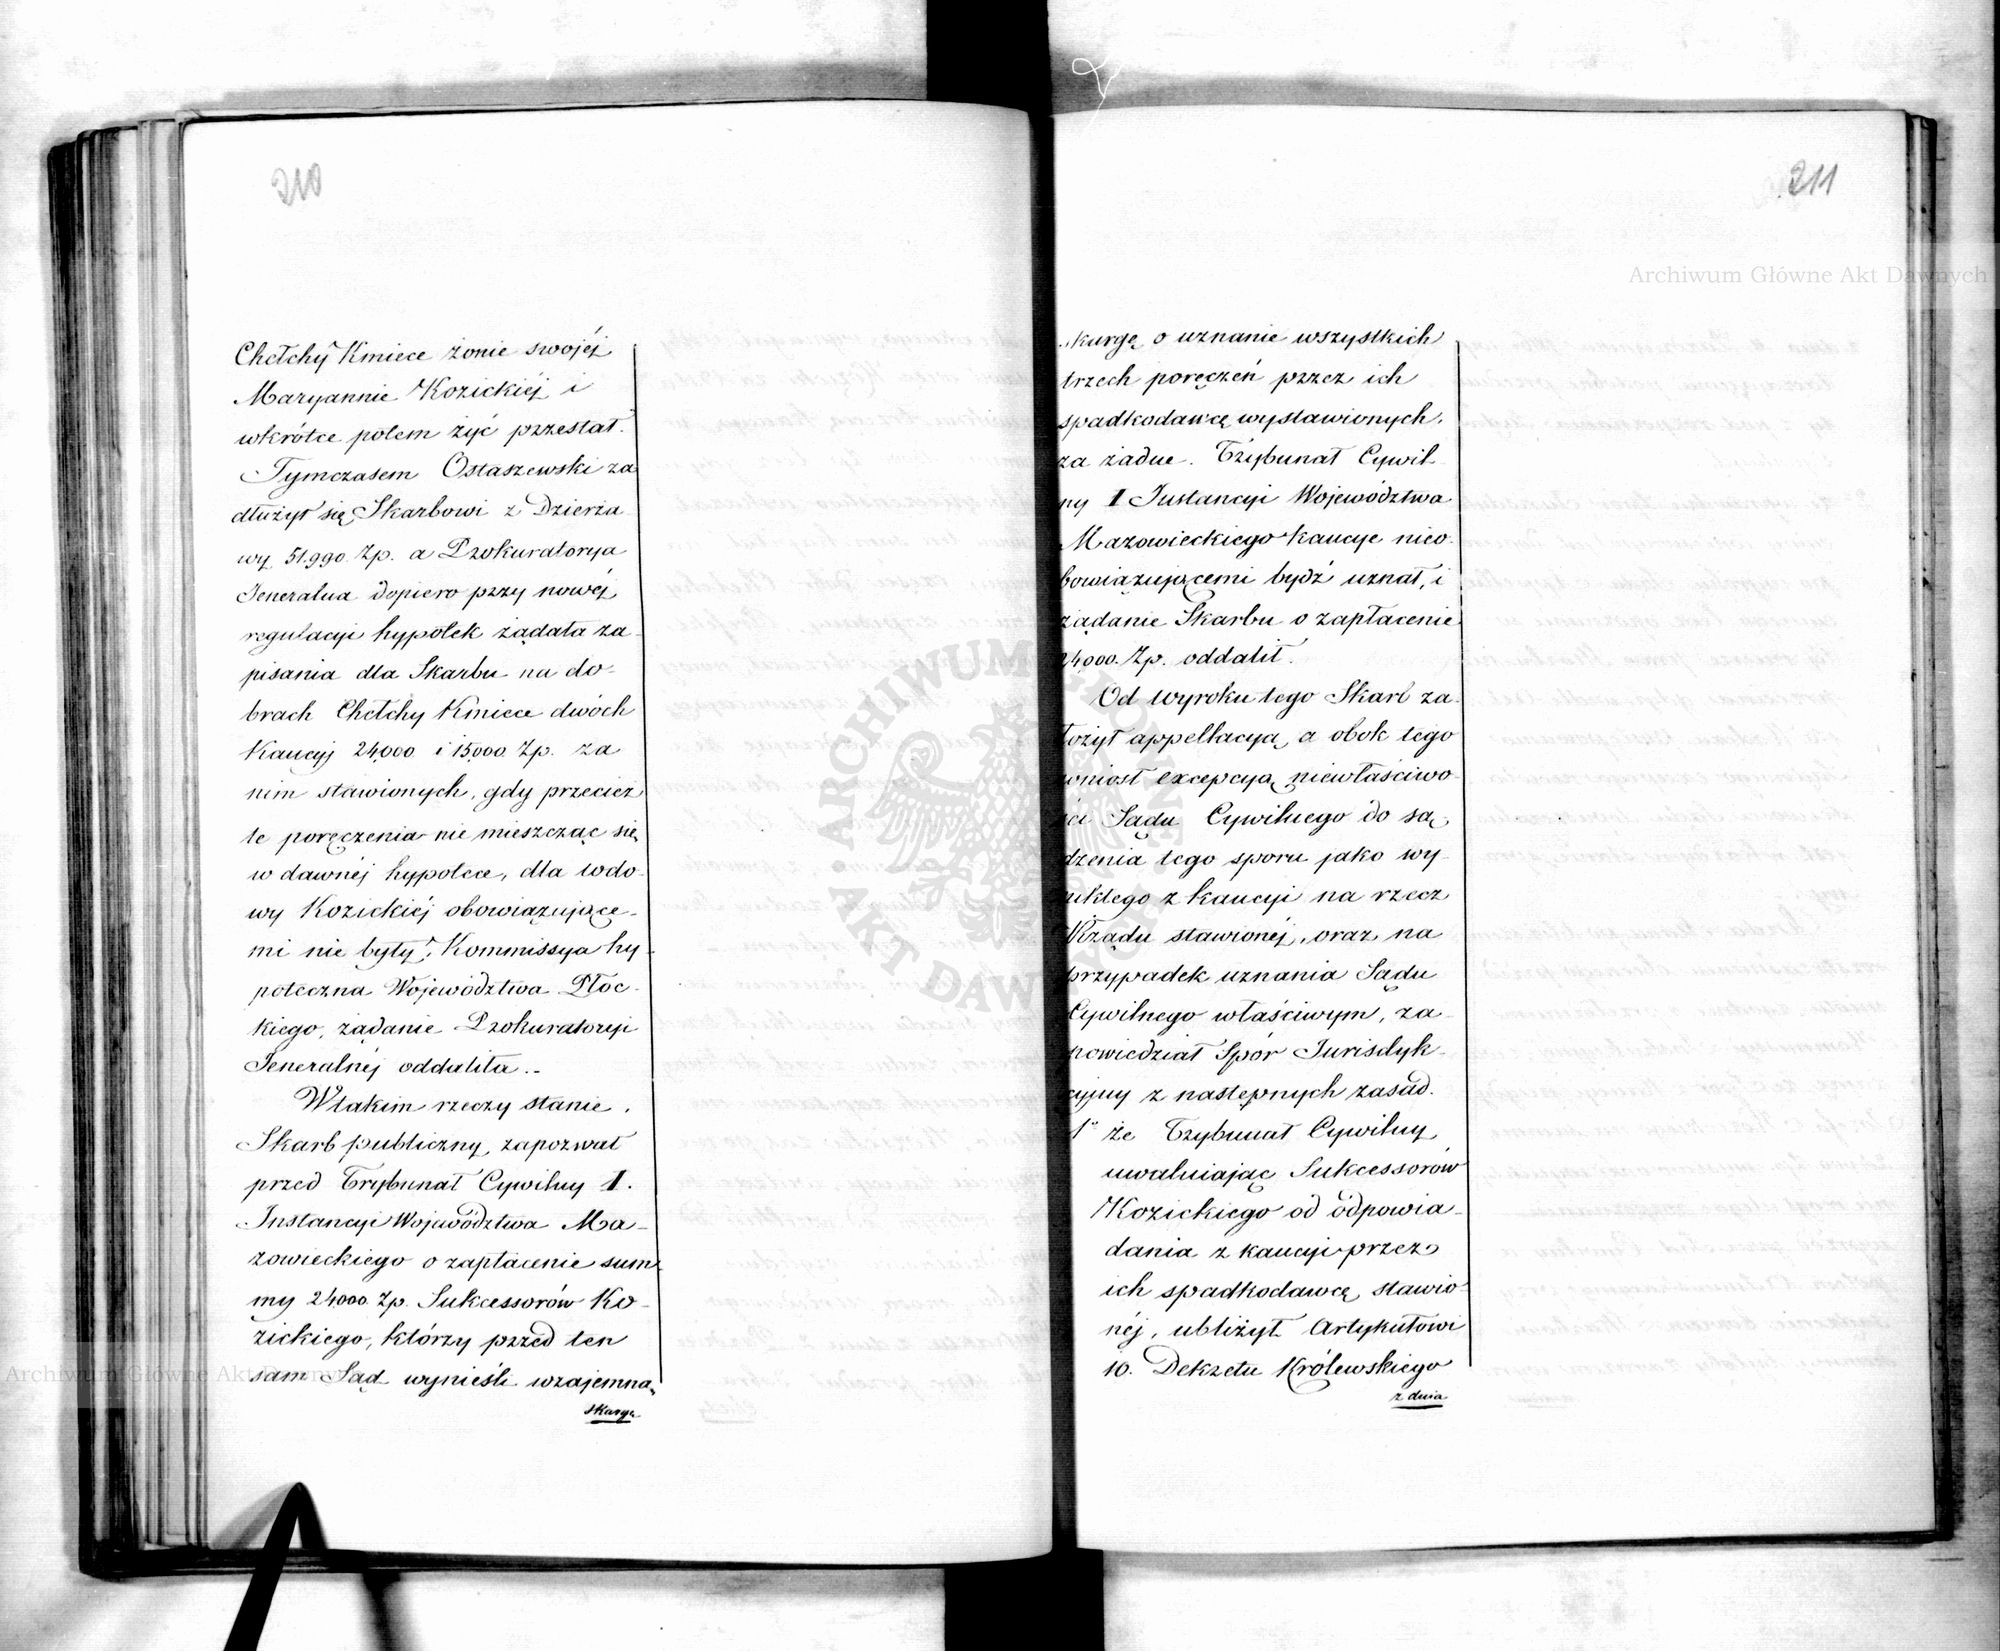 210
Chełchy Kmiece żonie swojéj
Maryannie Kozickiéj i
wkrótce potem żyć przestał.
Tymczasem Ostaszewski za
dłużył się Skarbowi z Dzierża
wy 51.990 Zp. a Prokuratorya
Jeneralna dopiero przy nowéj
regulacyi hypotek żądała za-
pisania dla Skarbu na do-
brach Chełchy Kmiece dwóch
Kaucyj 24,000 i 15,000 Zp. za
nim stawionych, gdy przecież
te poręczenia nie mieszcząc się
w dawnéj hypotece, dla wdo-
wy Kozickiéj obowiązujące-
mi nie były, Kommissya hy-
poteczna Województwa Płoc-
kiego, żądanie Prokuratoryi
Jeneralnéj oddaliła..
W takim rzeczy stanie,
Skarb publiczny, zapozwał
przed Trybunał Cywilny I.
Instancyi Województwa Ma-
zowieckiego o zapłacenie sum
my 24,000 Zp. Sukcessorów Ko-
zickiego, którzy przed ten
sam Sąd wynieśli wzajemną
skargę
211
skargę o uznanie wszystkich
trzech poręczeń przez ich
spadkodawcę wystawionych,
za żadne. Trybunał Cywil-
ny I Instancyi Województwa
Mazowieckiego Kaucye nieo-
bowiązującemi bydź uznał, i
żądanie Skarbu o zapłacenie
24,000. Zp. oddalił.
Od wyroku tego Skarb za-
łożył appellacyą, a obok tego
wniósł excepcyą niewłaściwo-
ści Sądu Cywilnego do są-
dzenia tego sporu jako wy-
nikłego z kaucyi na rzecz
Rządu stawionéj, oraz na
przypadek uznania Sądu
Cywilnego właściwym, za-
powiedział Spór Jurisdyk-
cyjny z następnych zasad.
1° że Trybunał Cywilny
uwalniając Sukcessorów
Kozickiego od odpowia-
dania z kaucyi przez
ich spadkodawcę stawio-
néj, ubliżył Artykułowi
10. Dekretu Królewskiego
z dnia
Archiwum Główne Akt Dawnych
ARCHIWUM GŁÓWNE AKT DAWNYCH
Archiwum Główne Akt Dawnych